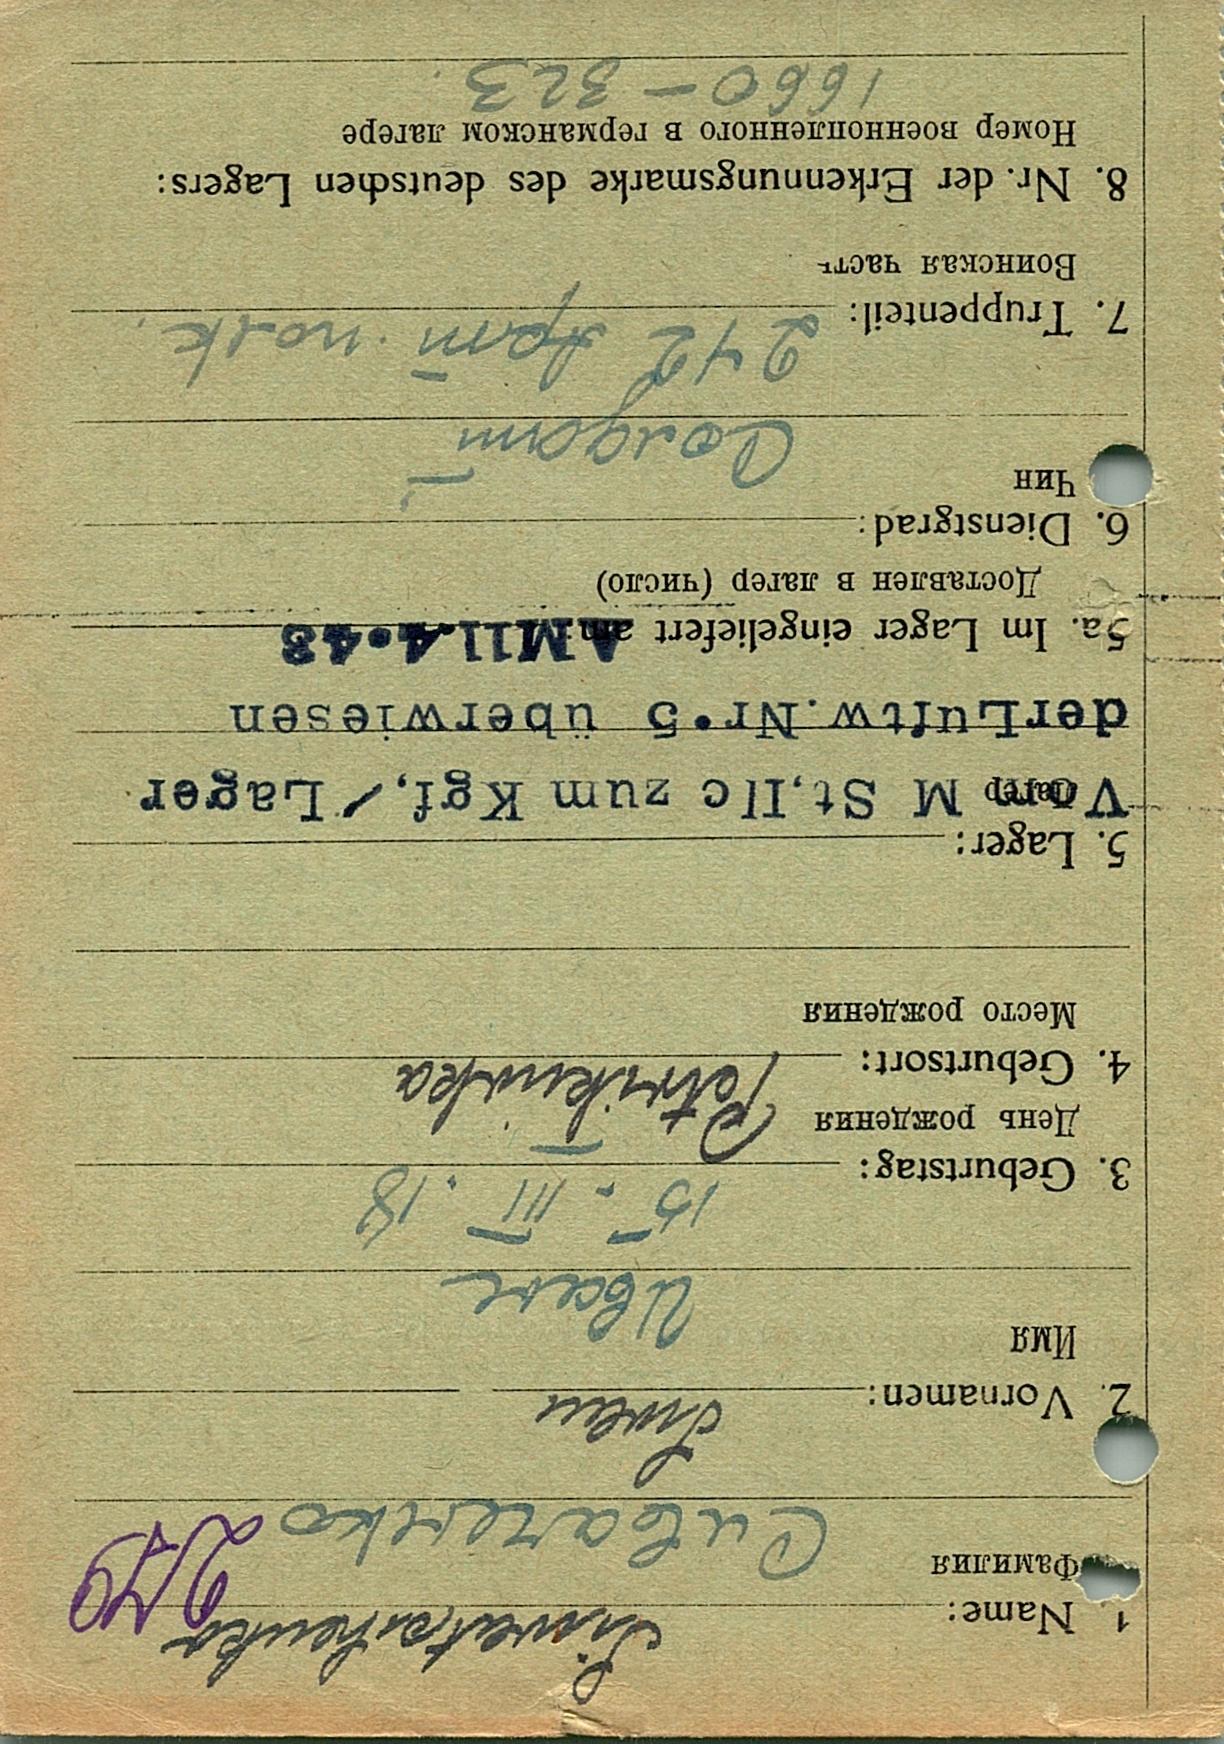 1 Name:
Фамилия
279
2. Vornamen: Iwan
Имя
Иван
3. Geburtstag: 15. III. 18
День рождения
4. Geburtsort:
Место рождения
5. Lager:
лагер
Vom M St,IIc zum Kgf,/Lager
derLuftw.Nr.5 überwiesen
5a. Im Lager eingeliefert am: AM11.4.43
Доставлен в лагер (число)
6. Dienstgrad:
Чин
Солдат
7. Truppenteil: 242 арт. полк.
Воинская часть
8. Nr. der Erkennungsmarke des deutschen Lagers:
Номер военнопленного в германском лагере
1660 – 323.